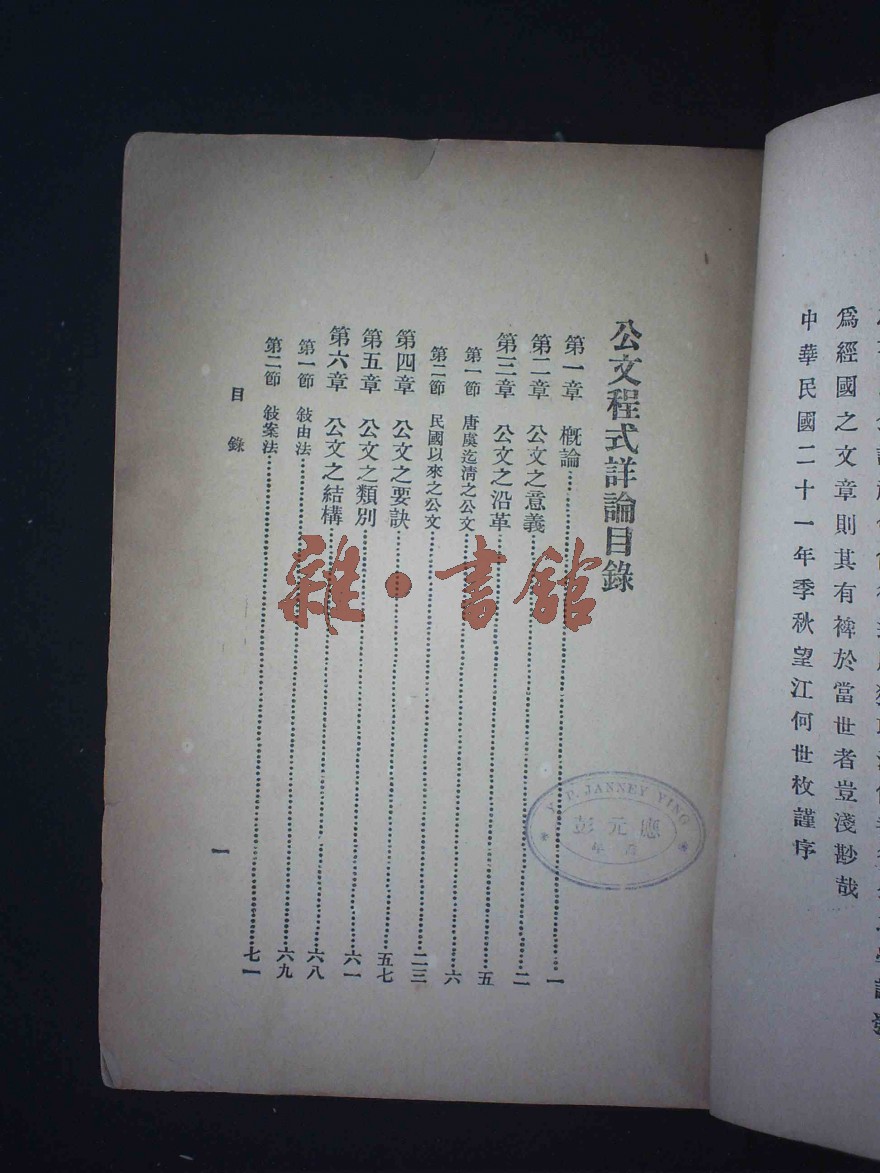 為經國之文章則其有裨於當世者豈淺尠哉
中華民國二十一年季秋望江何世枚謹序
公文程式詳論目錄
第一章 概論……一
第二章 公文之意義……二
第三章 公文之沿革……五
第一節 唐虞迄清之公文……六
第二節 民國以來之公文……二三
第四章 公文之要訣……五七
第五章 公文之類別……六一
第六章 公文之結構……六八
第一節 敍由法……六九
第二節 敍案法……七一
目錄
一
雜·書館
Y. P. JANNEY YING
彭元應